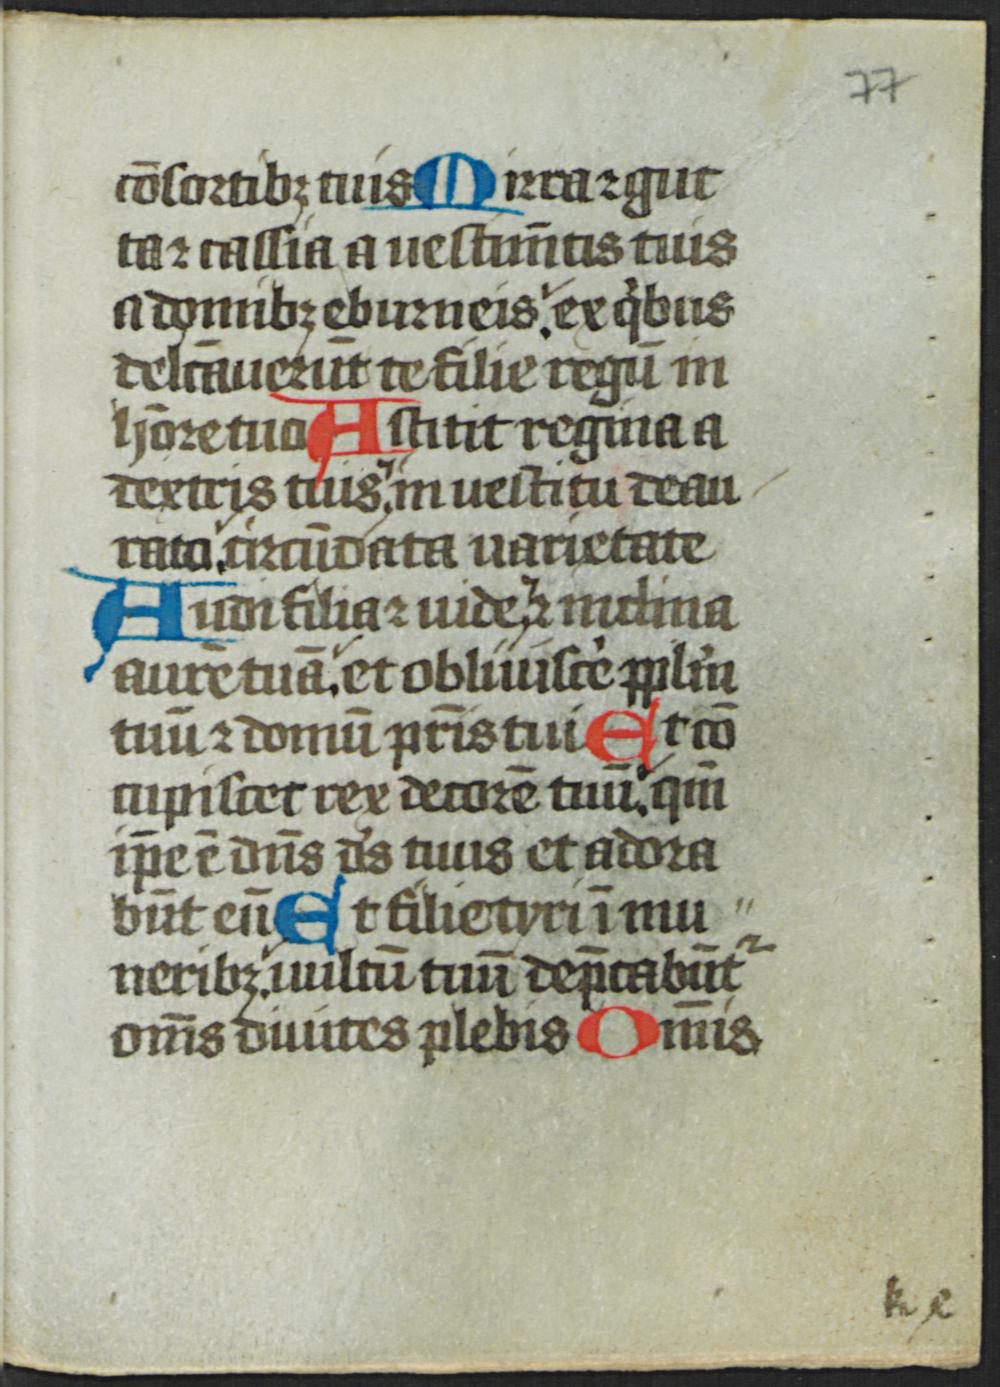 77
cōsortibꝫ tuis Mirra ⁊ gut
ta ⁊ cassia a uestimn̄tis tuis
a domibꝫ eburneis. ex qͥbus
delc̄auerūt te filie regū in
hōre tuo Astitit regina a
dextris tuis. in uestitu deau
rato. circūdata uarietate
Audi filia ⁊ uide. ⁊ inclina
aurē tuā. et obliuisce᷒ ppl̄m
tuū ⁊ domū pr̄is tui Et cō
cupiscet rex decorē tuū. qm̄
ip̄e ē dn̄s ds̄ tuus et adora
būt eū Et filie tyri ī mu
neribꝫ. uultū tuū dep̄cabūt᷑
om̄s diuites plebis Om̄is
k e